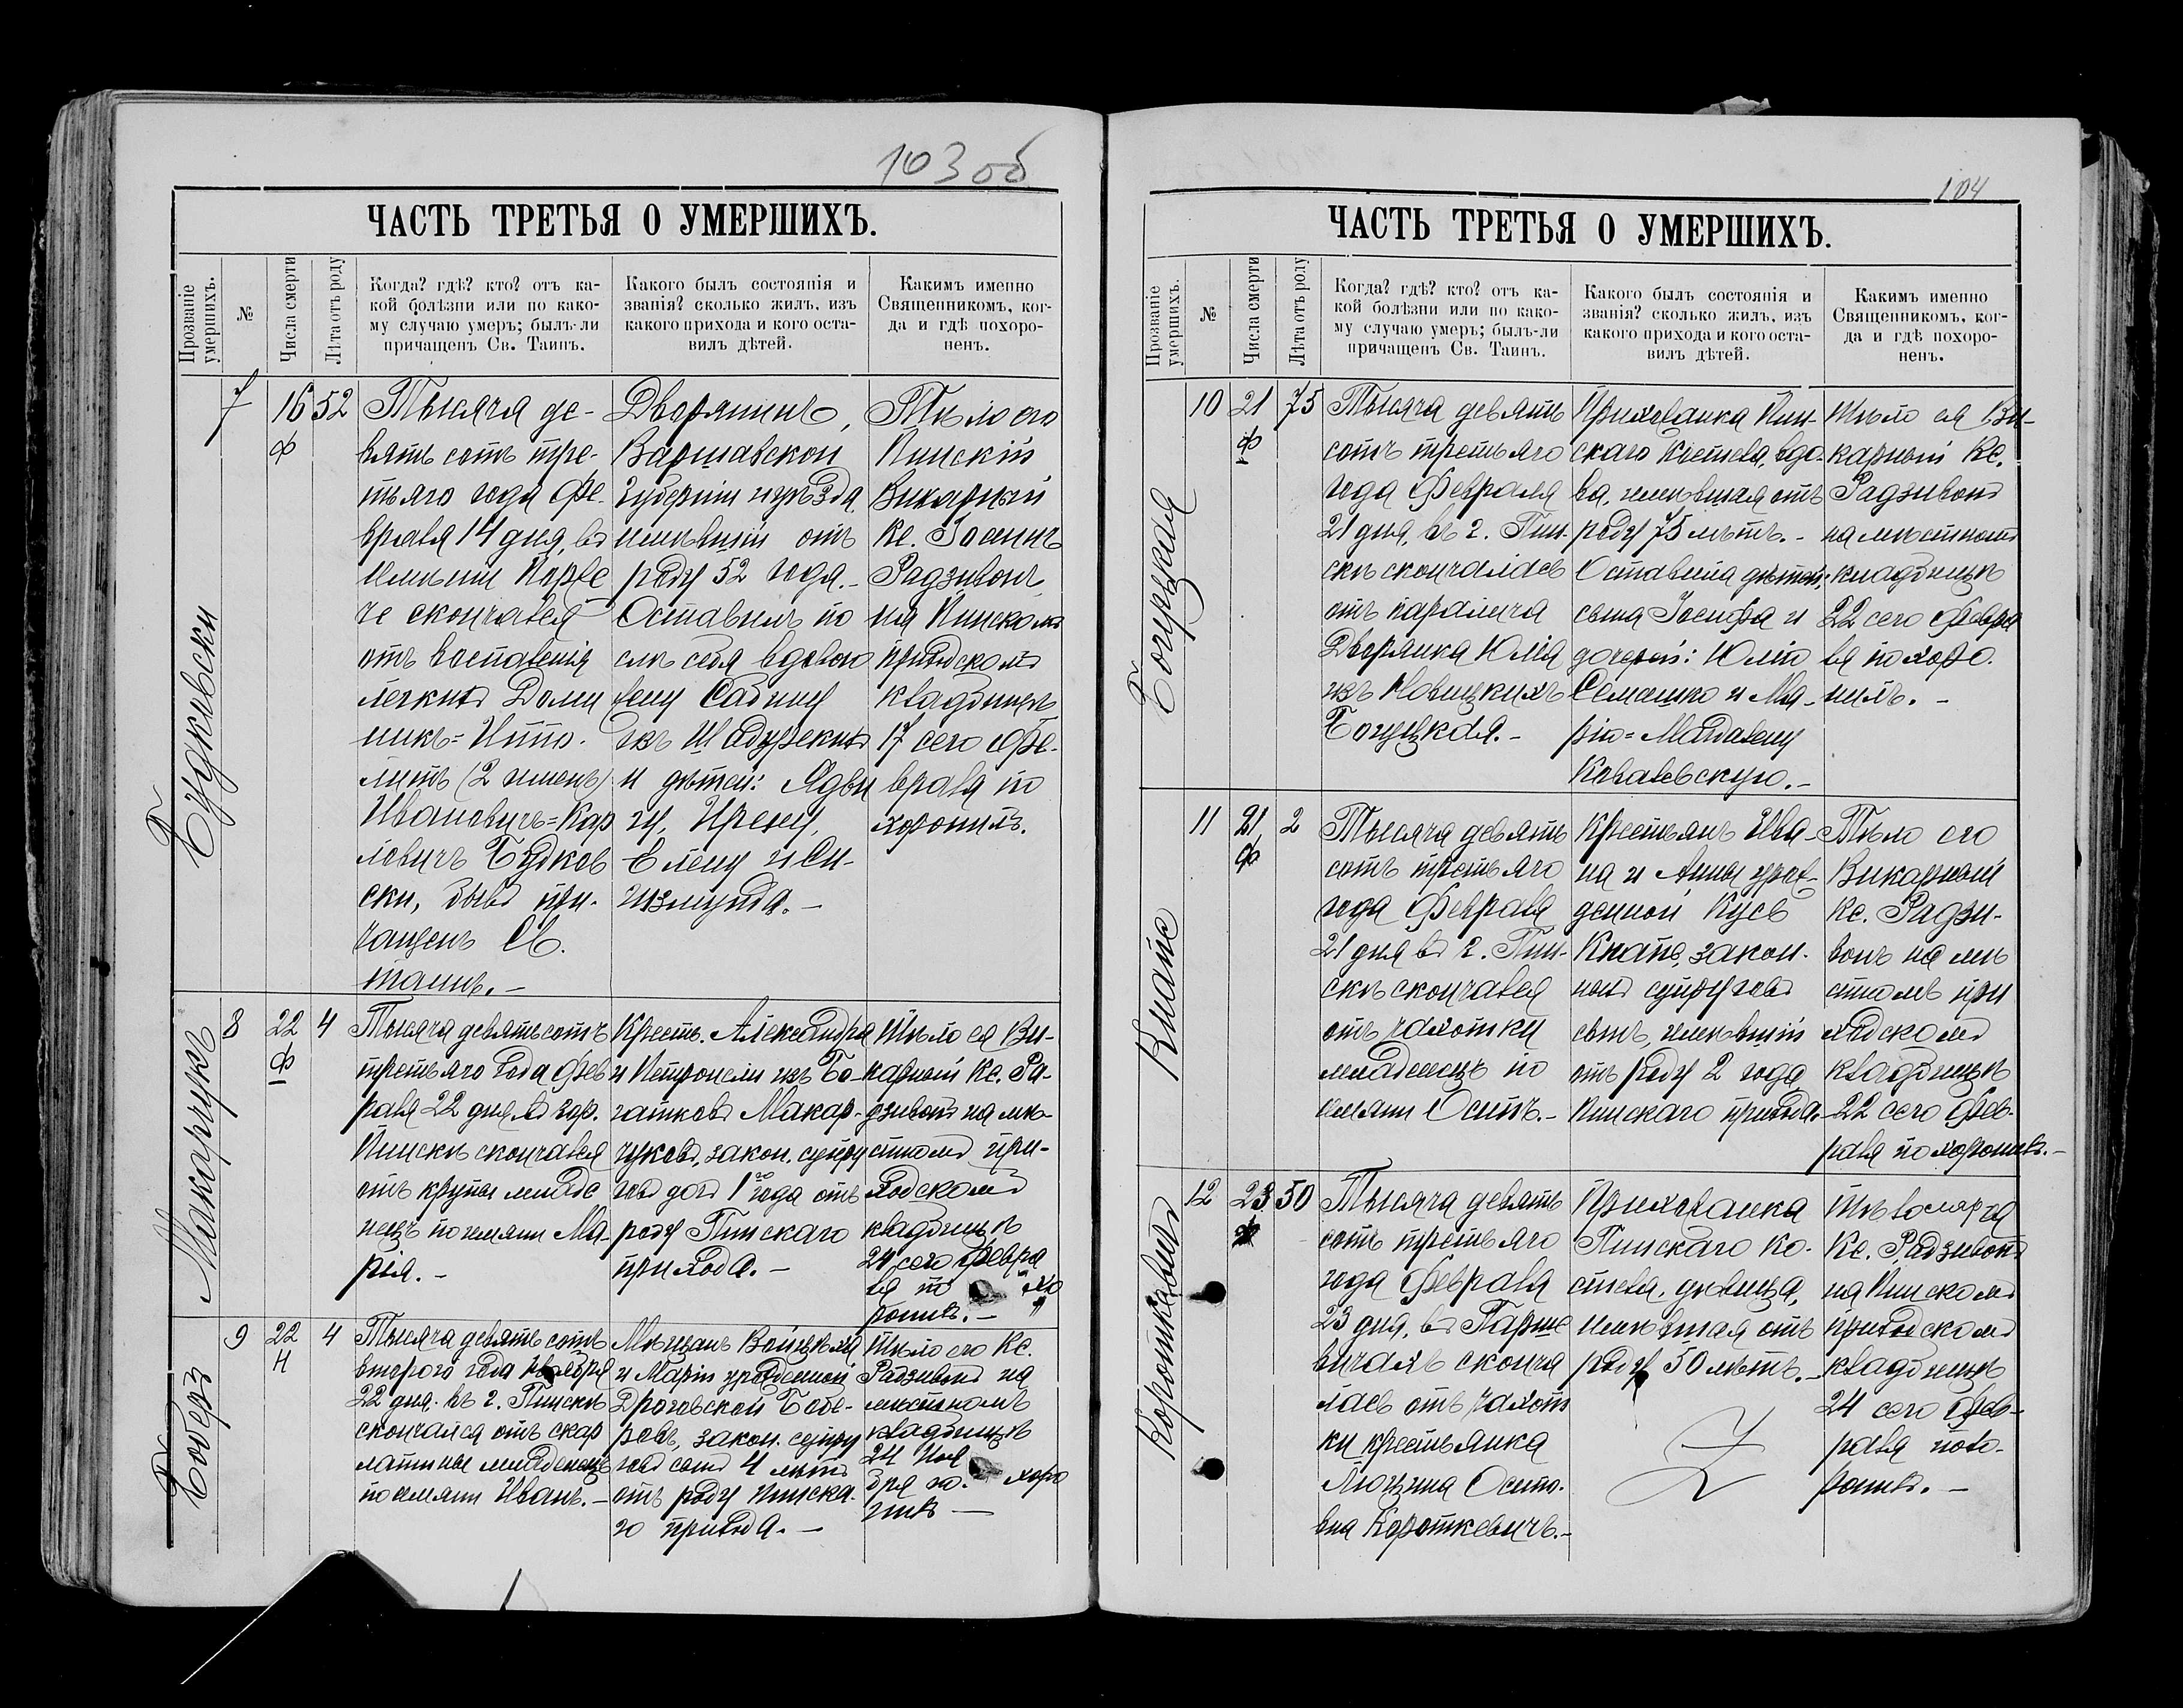 103 об
ЧАСТЬ ТРЕТЬЯ О УМЕРШИХЪ.
Прозваніе умершихъ.
№
Числа смерти
Лѣта отъ роду
Когда? гдѣ? кто? отъ ка-
кой болѣзни или по како-
му случаю умеръ; былъ-ли
причащенъ Св. Таинъ.
Какого былъ состоянія и
званія? сколько жилъ, изъ
какого прихода и кого оста-
вилъ дѣтей.
Какимъ именно
Священникомъ, ког-
да и гдѣ похоро-
ненъ.
Будковски
7
16
ф
52
Тысяча де-
вять сотъ тре-
тьяго года Фе-
враля 14 дня, въ
имѣніи
скончался
отъ воспаленія
легкихъ Доми
никъ=Иппо-
литъ (2 именъ)
Ивановичъ=Кар
ловичъ Будков
ски, бывъ при-
чащенъ Св.
таинъ.-
Дворянинъ,
Варшавской
Губерніи и уѣзда
имѣвшій отъ
роду 52 года.-
Оставилъ по
слѣ себя вдовою
жену Сабину
изъ
и дѣтей: Ядви
гу, Ирену,
Елену и Си-
гизмунда.-
Тѣло его
Пинскій
Викарный
Кс. Іоаннъ
Радзивонъ
на Пинскомъ
приходскомъ
кладбищѣ
17 сего Фе-
враля по
хоронилъ.
Макарчукъ
8
22
ф
4
Тысяча девятьсотъ
третьяго года Фев
раля 22 дня въ гор.
Пинскѣ скончалась
отъ крупы младе
нецъ по имяни Ма-
рія.-
Крестъ. Александра
и Петронели изъ Бо-
гатковъ Макар-
чуковъ, закон. супру
говъ дочь 1 года отъ
роду Пинскаго
прихода.-
Тѣло ея Ви-
карный Кс. Ра-
дзивонъ на мѣ-
стномъ при-
ходскомъ
кладбищѣ
24 сего Февра
ля по хо
ронилъ.-
Боберъ
9
22
Н
4
Тысяча девять сотъ
второго года Ноября
22 дня въ г. Пинскѣ
скончался отъ скар
латины младенецъ
по имяни Иванъ.-
Мѣщанъ Войцѣха
и Маріи урожденной
Бобе-
ровъ, закон. супру
говъ сынъ 4 лѣтъ
отъ роду Пинска-
го прихода.-
Тѣло его Кс.
Радзивонъ на
мѣстномъ
кладбищѣ
24 Ноя
бря по- хоро
нилъ-
104
ЧАСТЬ ТРЕТЬЯ О УМЕРШИХЪ.
Прозваніе умершихъ.
№
Числа смерти
Лѣта отъ роду
Когда? гдѣ? кто? отъ ка-
кой болѣзни или по како-
му случаю умеръ; былъ-ли
причащенъ Св. Таинъ.
Какого былъ состоянія и
званія? сколько жилъ, изъ
какого прихода и кого оста-
вилъ дѣтей.
Какимъ именно
Священникомъ, ког-
да и гдѣ похоро-
ненъ.
Богуцкая
10
21
ф
75
Тысяча девять
сотъ третьяго
года Февраля
21 дня, въ г. Пин-
скѣ скончалась
отъ паралича
Дворянка Юлія
изъ Новицкихъ
Богуцкая.-
Прихожанка Пин-
скаго Костела, вдо-
ва, имѣвшая отъ
роду 75 лѣтъ.-
Оставила дѣтей:
сына Іосифа и
дочерей: Юлію
Семашко и Ма-
рію=Магдалену
Ковалевскую.-
Тѣло ея Ви-
карный Кс.
Радзивонъ
на мѣстномъ
кладбищѣ
22 сего Февра
ля похоро-
нилъ.-
Кнапъ
11
21
ф
2
Тысяча девять
сотъ третьяго
года Февраля
21 дня въ г. Пин-
скѣ скончался
отъ чахотки
младенецъ по
имяни Осипъ.-
Крестьянъ Ива-
на и Анны урож-
денной Кусь
Кнапъ, закон-
ныхъ супруговъ
сынъ, имѣвшій
отъ роду 2 года
Пинскаго прихода.-
Тѣло его
Викарный
Кс. Радзи-
вонъ на мѣ
стномъ при
ходскомъ
кладбищѣ
22 сего Фев-
раля похоронилъ.-
Короткевичъ
12
23
ф
50
Тысяча девять
сотъ третьяго
года Февраля
23 дня, въ Парше
вичахъ сконча
лась отъ чахот
ки крестьянка
Люцина Осипо-
вна Короткевичъ.-
Прихожанка
Пинскаго Ко-
стела, дѣвица,
имѣвшая отъ
роду 50 лѣтъ.-
Тѣло
Кс. Радзивонъ
на Пинскомъ
приходскомъ
кладбищѣ
24 сего Фев-
раля похо-
ронилъ.-